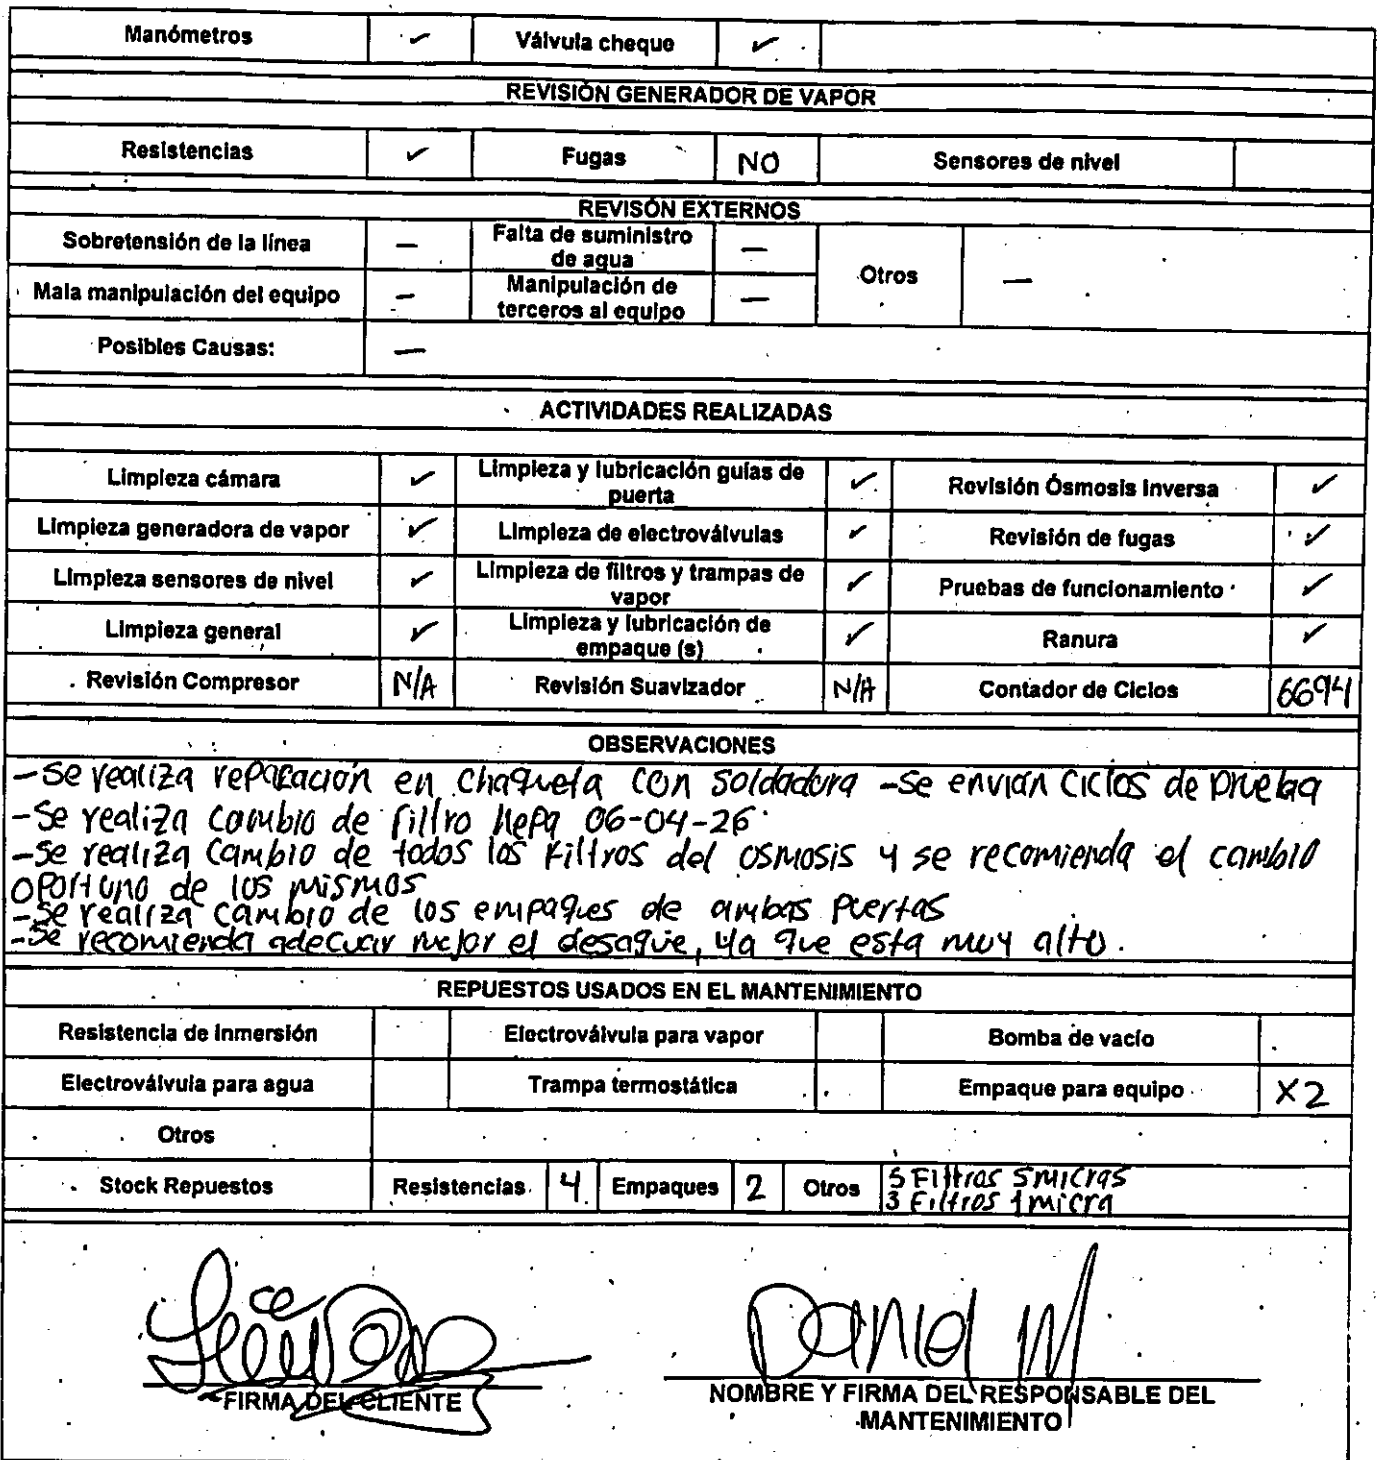 Manómetros ✓ Válvula cheque ✓
REVISIÓN GENERADOR DE VAPOR
Resistencias ✓ Fugas NO Sensores de nivel
REVISÓN EXTERNOS
Sobretensión de la línea — Falta de suministro de agua — Otros —
Mala manipulación del equipo — Manipulación de terceros al equipo —
Posibles Causas: —
ACTIVIDADES REALIZADAS
Limpieza cámara ✓ Limpieza y lubricación guías de puerta ✓ Revisión Ósmosis Inversa ✓
Limpieza generadora de vapor ✓ Limpieza de electroválvulas ✓ Revisión de fugas ✓
Limpieza sensores de nivel ✓ Limpieza de filtros y trampas de vapor ✓ Pruebas de funcionamiento ✓
Limpieza general ✓ Limpieza y lubricación de empaque (s) ✓ Ranura ✓
Revisión Compresor N/A Revisión Suavizador N/A Contador de Ciclos 6694
OBSERVACIONES
-Se realiza reparación en chaqueta con soldadura -Se envian ciclos de prueba
-Se realiza cambio de filtro hepa 06-04-26
-Se realiza cambio de todos los filtros del osmosis y se recomienda el cambio
oportuno de los mismos
-Se realiza cambio de los empaques de ambas puertas
-Se recomienda adecuar mejor el desagüe, ya que esta muy alto.
REPUESTOS USADOS EN EL MANTENIMIENTO
Resistencia de inmersión Electroválvula para vapor Bomba de vacío
Electroválvula para agua Trampa termostática Empaque para equipo X2
Otros
Stock Repuestos Resistencias 4 Empaques 2 Otros 5 Filtros 5 micras
3 Filtros 1 micra
Daniel M
FIRMA DEL CLIENTE NOMBRE Y FIRMA DEL RESPONSABLE DEL
MANTENIMIENTO